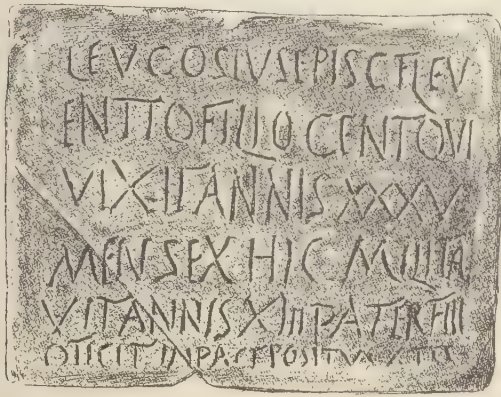 LEVCOSIVSEPISCFLEV
ENTIOFILIO CENTQVI
VIXITANNIS XXXV
MENSEX HIC MILITA
VITANNISXIIIPATERFIII
INPACEPOSITVS